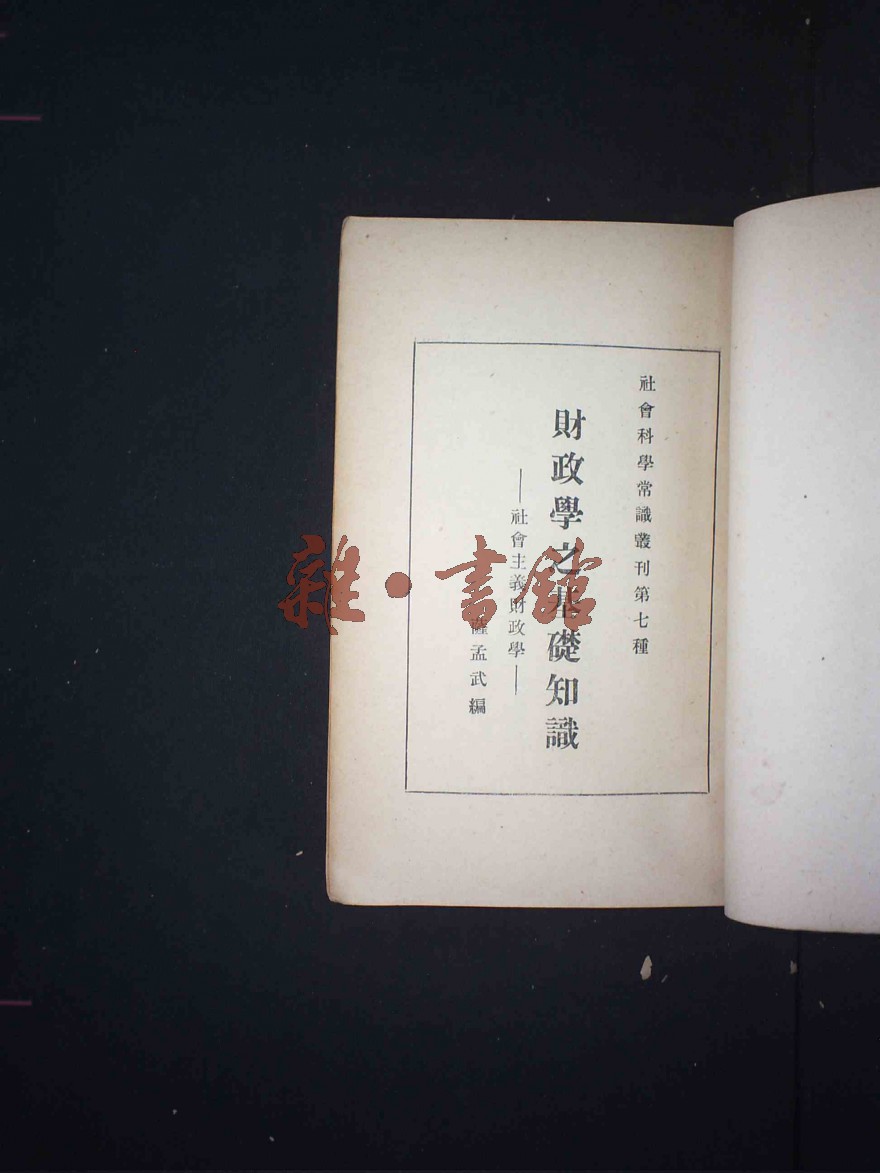 社會科學常識叢刊第七種
財政學之基礎知識
——社會主義財政學——
薩孟武編
雜·書館